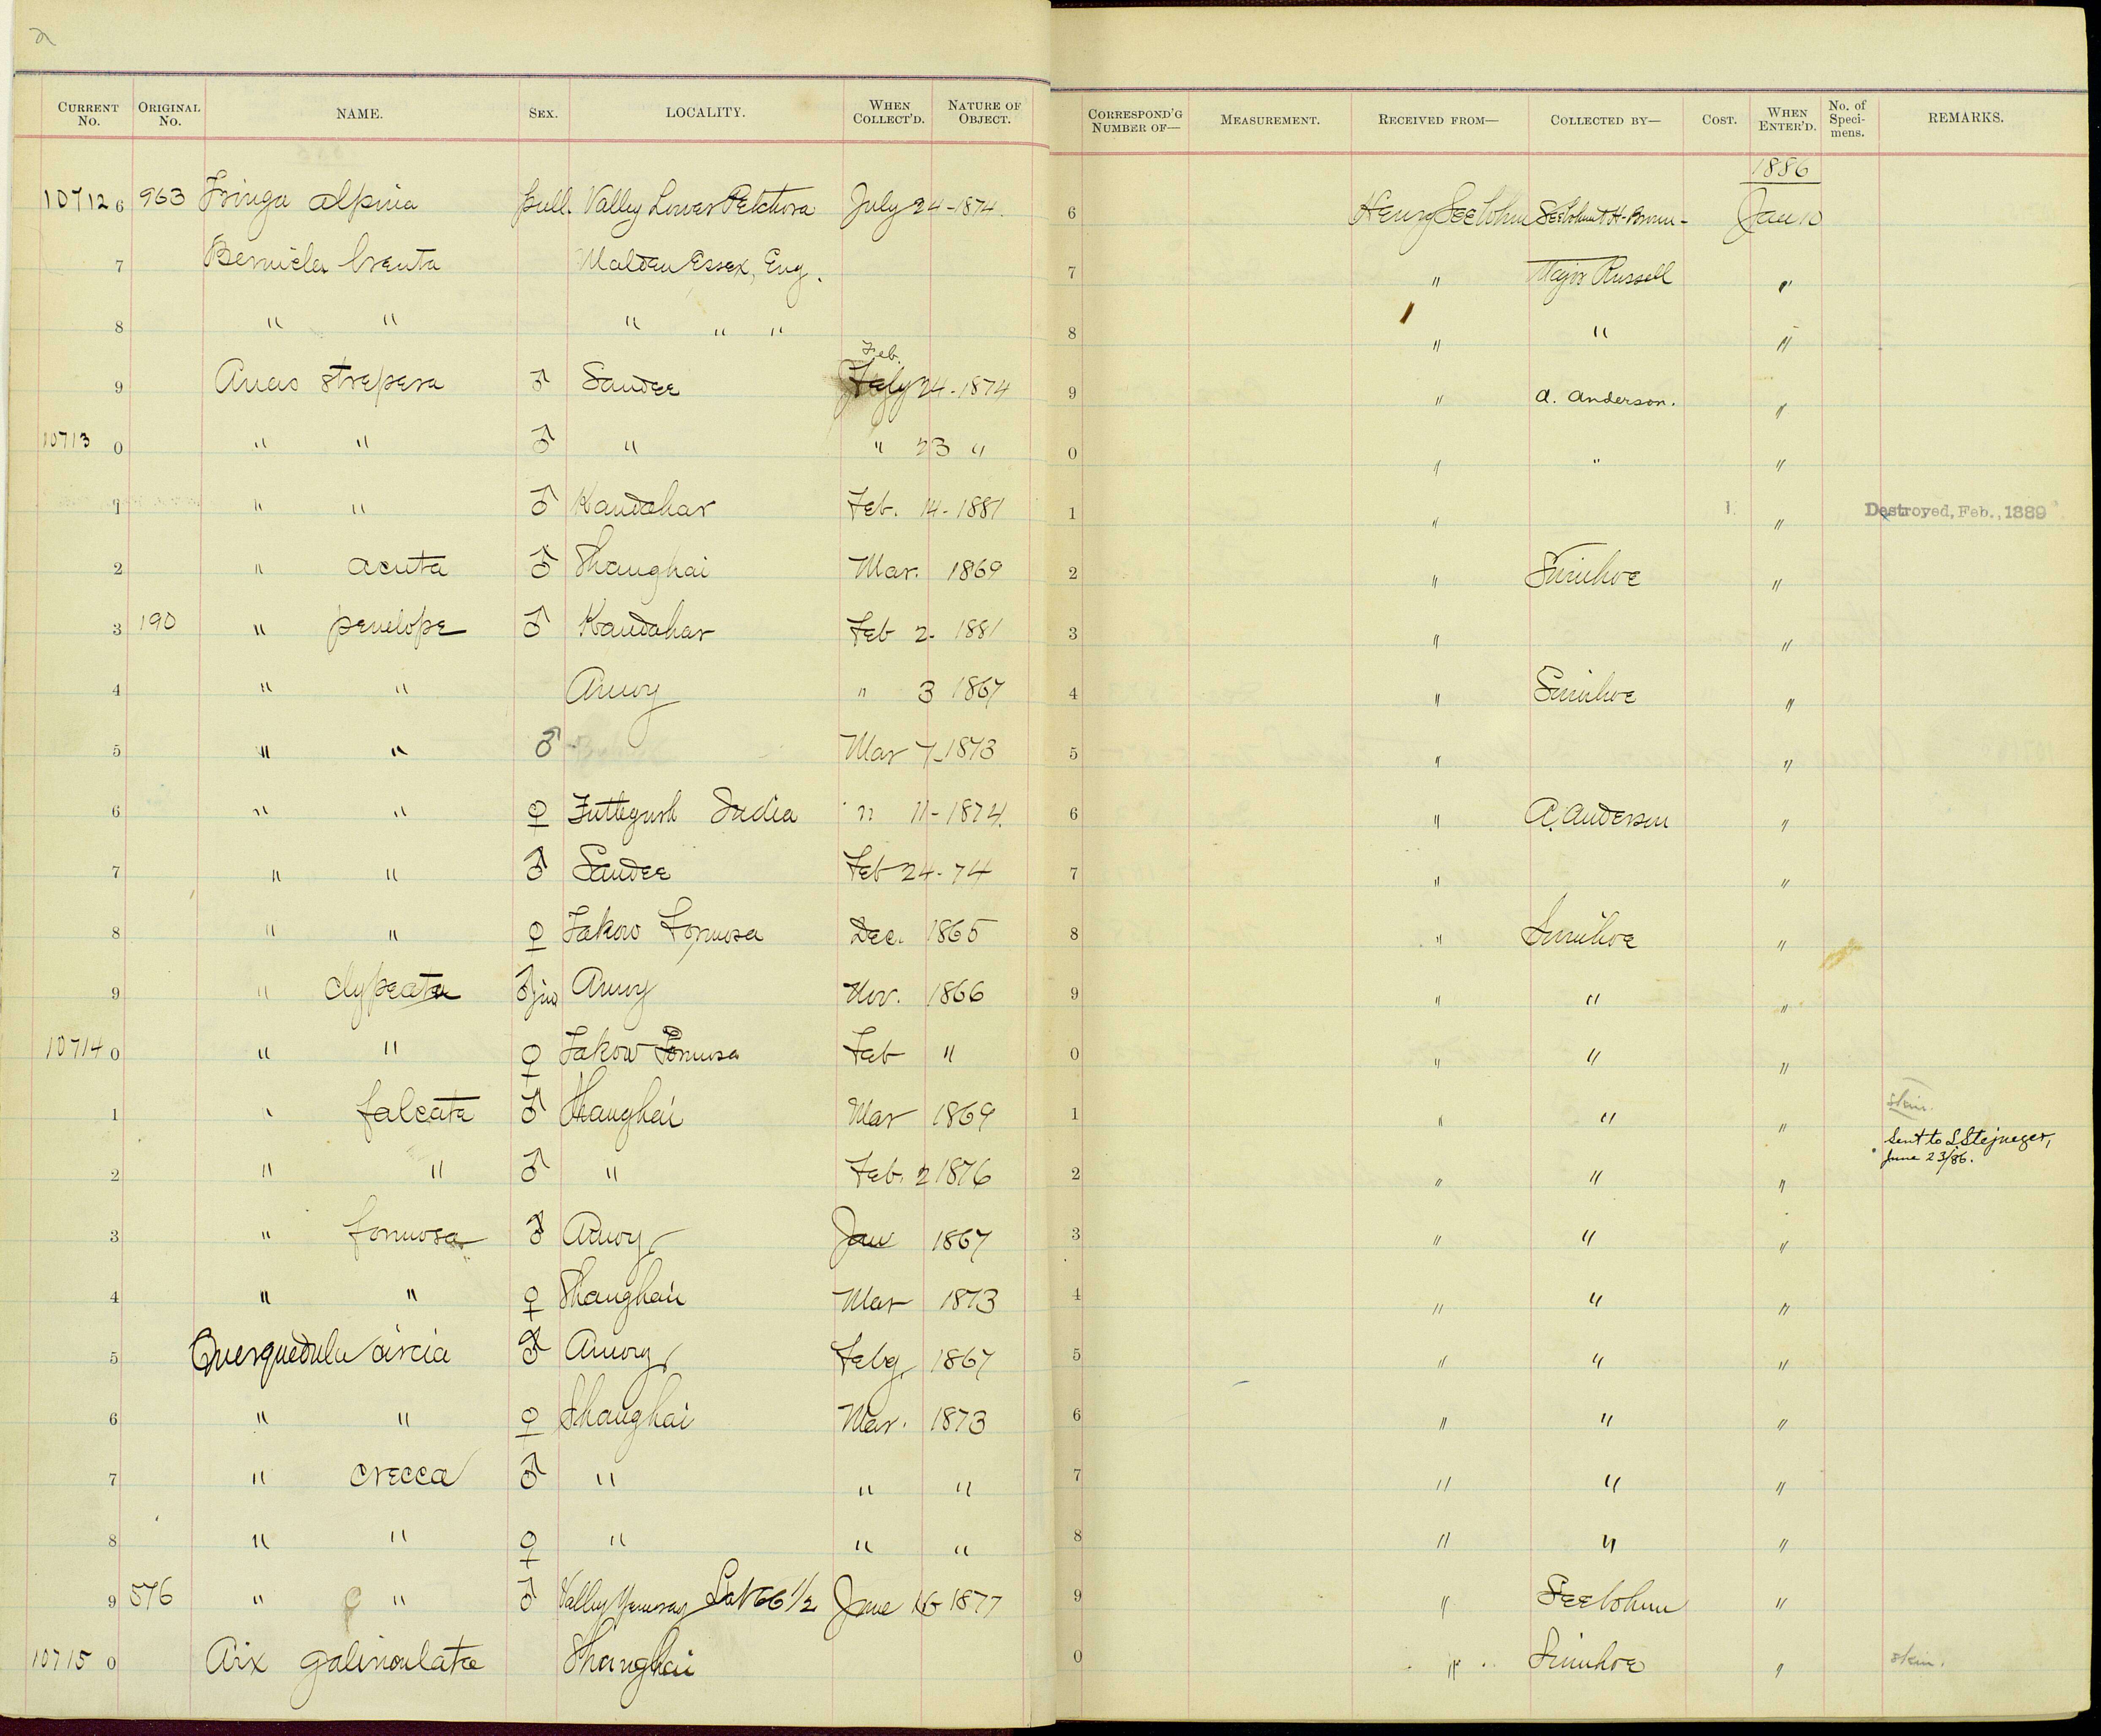 2
CURRENT No. ORIGINAL No. NAME. SEX. LOCALITY. WHEN COLLECT'D. NATURE OF OBJECT. CORRESPOND'G NUMBER OF— MEASUREMENT. RECEIVED FROM— COLLECTED BY— COST. WHEN ENTER'D. No. of Specimens. REMARKS.
1886
10712 6 963 Tringa alpina pull. Valley Lower Petchora July 24-1874. 6 Henry Seebohm Seebohm & H-Brown- Jan 10
7 Bernicla brenta Maldon Essex, Eng. 7 " Major Russell "
8 " " " " " 8 " " "
Feb.
9 Anas strepera ♂ Sandee July 24-1874 9 " A. Anderson. "
10713 0 " " ♂ " " 23 " 0 " " "
1 " " ♂ Kandahar Feb. 14-1881 1 " 1. " Destroyed, Feb., 1889
2 " acuta ♂ Shanghai Mar. 1869 2 " Swinhoe "
3 190 " penelope ♂ Kandahar Feb 2- 1881 3 " "
4 " " Amoy " 3 1867 4 " Swinhoe "
5 " " ♂ Mar 7-1873 5 " "
6 " " ♀ Futtegurh India " 11-1874. 6 " A. Anderson "
7 " " ♂ Sandee Feb 24-74 7 " "
8 " " ♀ Takow Formosa Dec. 1865 8 " Swinhoe "
9 " clypeata ♂ juv Amoy Nov. 1866 9 " " "
10714 0 " " ♀ Takow Formosa Feb " 0 " " "
1 " falcata ♂ Shanghai Mar 1869 1 " " " skin.
Sent to L Stejneger,
June 23/86.
2 " " ♂ " Feb. 2 1876 2 " " "
3 " formosa ♂ Amoy Jan 1867 3 " " "
4 " " ♀ Shanghai Mar 1873 4 " " "
5 Querquedula circia ♂ Amoy Feby 1867 5 " " "
6 " " ♀ Shanghai Mar. 1873 6 " " "
7 " crecca ♂ " " " 7 " " "
8 " " ♀ " " " 8 " " "
9 576 " " ♂ Valley Yenesay Lat 66 1/2 June 16-1877 9 " Seebohm "
10715 0 Aix galericulata Shanghai 0 " Swinhoe " skin.